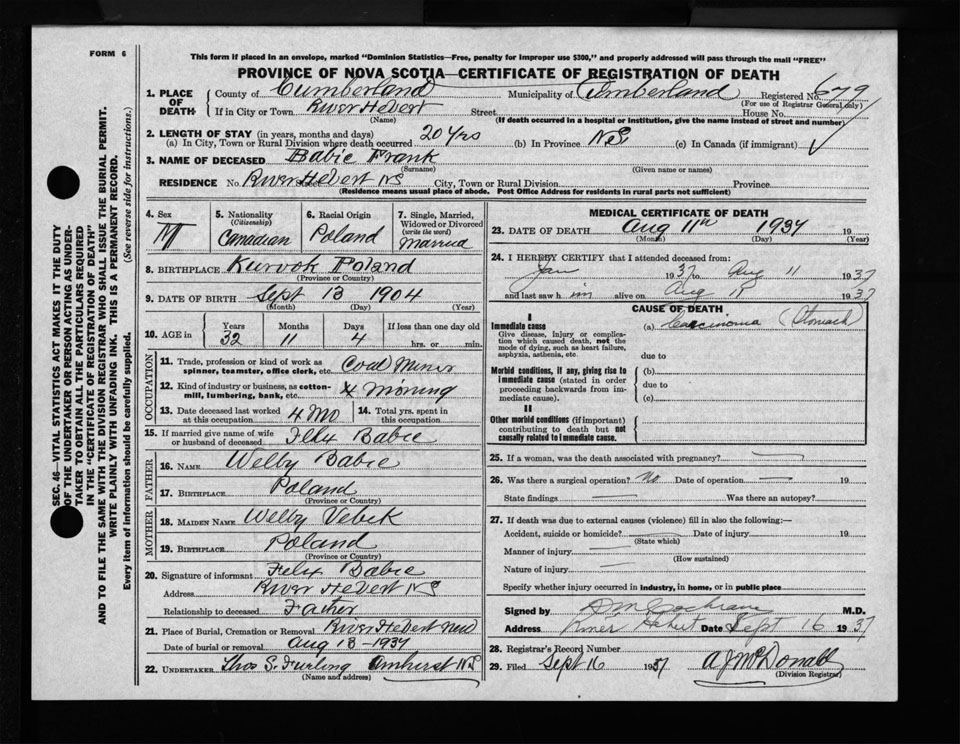 FORM 6
This form if placed in an envelope, marked "Dominion Statistics—Free, penalty for improper use $300," and properly addressed will pass through the mail "FREE"
PROVINCE OF NOVA SCOTIA—CERTIFICATE OF REGISTRATION OF DEATH
1. PLACE OF DEATH— County of Cumberland Municipality of Cumberland Registered No. 679
(For use of Registrar General only)
If in City or Town River Hebert Street House No.
(Name) (If death occurred in a hospital or institution, give the name instead of street and number)
2. LENGTH OF STAY (in years, months and days)
(a) In City, Town or Rural Division where death occurred 20 yrs (b) In Province N.S (c) In Canada (if immigrant)
3. NAME OF DECEASED Babie Frank
(Surname) (Given name or names)
RESIDENCE No. River Hebert NS City, Town or Rural Division Province
(Residence means usual place of abode. Post Office Address for residents in rural parts not sufficient)
4. Sex M
5. Nationality (Citizenship) Canadian
6. Racial Origin Poland
7. Single, Married, Widowed or Divorced (write the word) married
8. BIRTHPLACE Kurvok Poland
(Province or Country)
9. DATE OF BIRTH Sept 13 1904
(Month) (Day) (Year)
10. AGE in Years 32 Months 11 Days 4 If less than one day old hrs. or min.
OCCUPATION
11. Trade, profession or kind of work as spinner, teamster, office clerk, etc. Coal Miner
12. Kind of industry or business, as cotton-mill, lumbering, bank, etc. Mining
13. Date deceased last worked at this occupation 4 Mo
14. Total yrs. spent in this occupation
15. If married give name of wife or husband of deceased Felix Babie
FATHER
16. NAME Welby Babie
17. BIRTHPLACE Poland
(Province or Country)
MOTHER
18. MAIDEN NAME Welby Vebek
19. BIRTHPLACE Poland
(Province or Country)
20. Signature of informant Felix Babie
Address River Hebert NS
Relationship to deceased Father
21. Place of Burial, Cremation or Removal River Hebert New
Date of burial or removal Aug 13-1937
22. UNDERTAKER Thos S. Furling Amherst N.S
(Name and address)
MEDICAL CERTIFICATE OF DEATH
23. DATE OF DEATH Aug 11th 1937 19
(Month) (Day) (Year)
24. I HEREBY CERTIFY that I attended deceased from:
Jan 1937 to Aug 11 1937
and last saw him alive on Aug 11 1937
CAUSE OF DEATH
I
Immediate cause
Give disease, injury or complication which caused death, not the mode of dying, such as heart failure, asphyxia, asthenia, etc.
(a) Carcinoma (Stomach)
due to
Morbid conditions, if any, giving rise to immediate cause (stated in order proceeding backwards from immediate cause).
(b)
due to
(c)
II
Other morbid conditions (if important) contributing to death but not causally related to immediate cause.
25. If a woman, was the death associated with pregnancy?
26. Was there a surgical operation? No Date of operation 19
State findings Was there an autopsy?
27. If death was due to external causes (violence) fill in also the following:—
Accident, suicide or homicide? Date of injury 19
(State which)
Manner of injury
(How sustained)
Nature of injury
Specify whether injury occurred in industry, in home, or in public place
Signed by D M Cochrane M.D.
Address River Hebert Date Sept 16 1937
28. Registrar's Record Number
29. Filed Sept 16 1937 A J McDonald
(Division Registrar)
SEC. 46—VITAL STATISTICS ACT MAKES IT THE DUTY
OF THE UNDERTAKER OR PERSON ACTING AS UNDER-
TAKER TO OBTAIN ALL THE PARTICULARS REQUIRED
IN THE "CERTIFICATE OF REGISTRATION OF DEATH"
AND TO FILE THE SAME WITH THE DIVISION REGISTRAR WHO SHALL ISSUE THE BURIAL PERMIT.
WRITE PLAINLY WITH UNFADING INK. THIS IS A PERMANENT RECORD.
Every item of information should be carefully supplied. (See reverse side for instructions.)